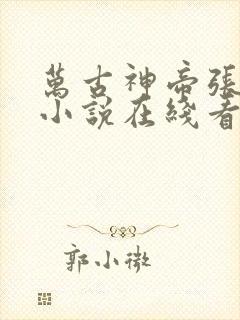 萬古神帝張
小說在綫看
郭小微